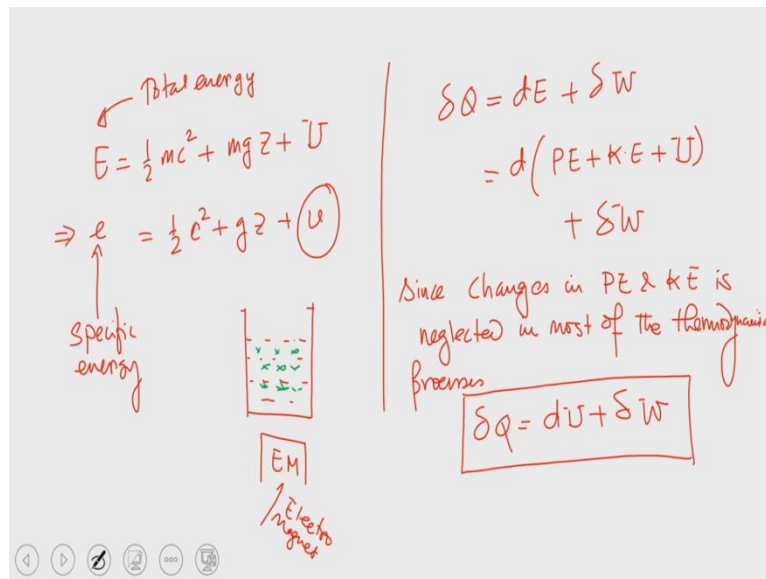 Total energy
E = ½ mc² + mgz + U
⇒ e = ½ c² + gz + u
Specific
energy
EM
Electro
Magnet
δQ = dE + δW
= d(PE + K.E + U)
+ δW
Since Changes in PE & KE is
neglected in most of the thermodynamic
processes
δQ = dU + δW